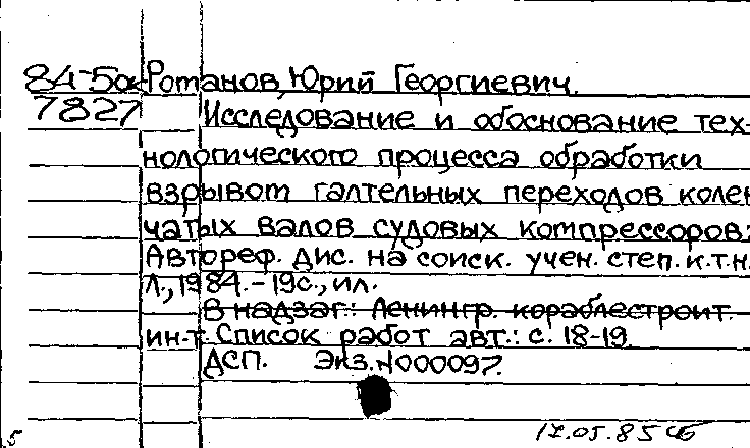 84-5ок Ротанов, Юрий Георгиевич.
7827 Исследование и обоснование тех-
нологического процесса обработки
взрывом галтельных переходов колен-
чатых валов судовых компрессоров:
Автореф. дис. на соиск. учен. степ. к.т.н.
Л., 1984.-19с., ил.
В надзаг.: Ленингр. кораблестроит.
ин-т. Список работ авт.: с. 18-19.
ДСП. Экз.N000097.
17.05.85
5